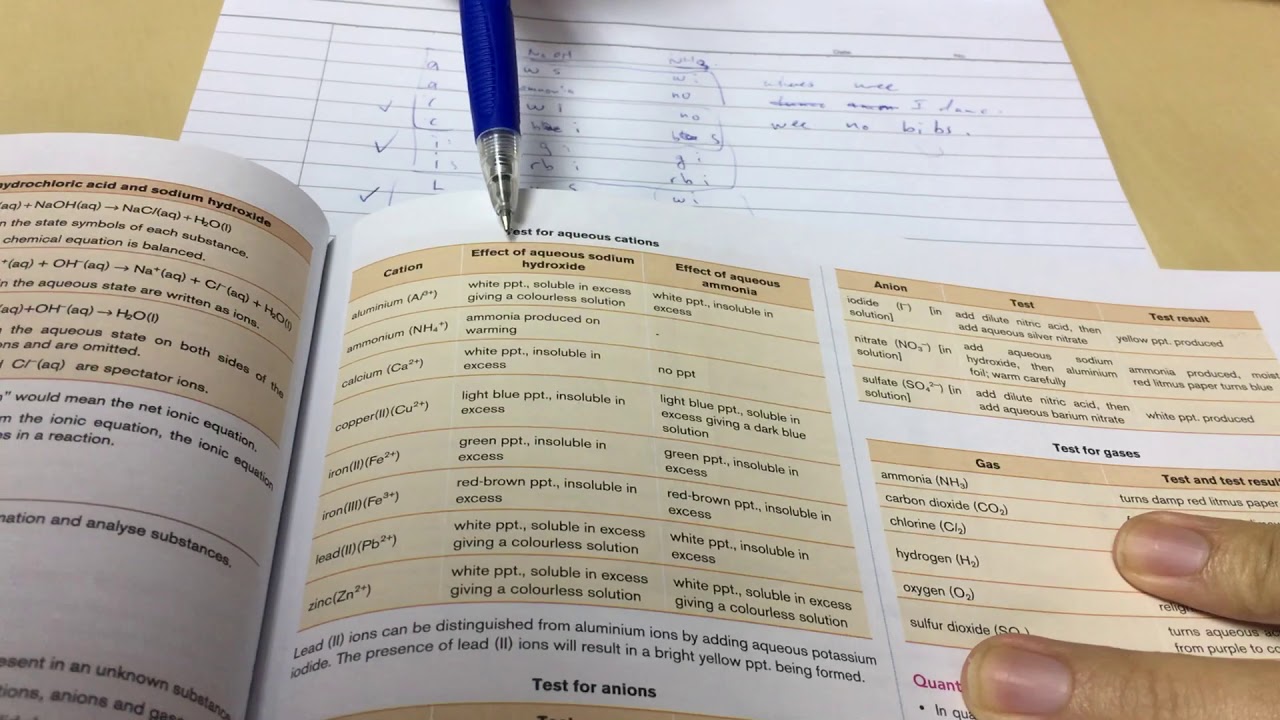 a w s w i
a ammonia no
c w i no
i g i g i
rb i rb i
w i
wee
I
wee no bibs.
hydrochloric acid and sodium hydroxide
(aq) + NaOH(aq) → NaCl(aq) + H₂O(l)
the state symbols of each substance.
chemical equation is balanced.
⁺(aq) + OH⁻(aq) → Na⁺(aq) + Cl⁻(aq) + H₂O(l)
in the aqueous state are written as ions.
(aq)+OH⁻(aq) → H₂O(l)
the aqueous state on both sides of the
and are omitted.
Cl⁻(aq) are spectator ions.
would mean the net ionic equation.
the ionic equation, the ionic equation
in a reaction.
and analyse substances.
in an unknown substance
anions and
Test for aqueous cations
Cation Effect of aqueous sodium hydroxide Effect of aqueous ammonia
aluminium (Al³⁺) white ppt., soluble in excess giving a colourless solution white ppt., insoluble in excess
ammonium (NH₄⁺) ammonia produced on warming -
calcium (Ca²⁺) white ppt., insoluble in excess no ppt
copper(II)(Cu²⁺) light blue ppt., insoluble in excess light blue ppt., soluble in excess giving a dark blue solution
iron(II)(Fe²⁺) green ppt., insoluble in excess green ppt., insoluble in excess
iron(III)(Fe³⁺) red-brown ppt., insoluble in excess red-brown ppt., insoluble in excess
lead(II)(Pb²⁺) white ppt., soluble in excess giving a colourless solution white ppt., insoluble in excess
zinc(Zn²⁺) white ppt., soluble in excess giving a colourless solution white ppt., soluble in excess giving a colourless solution
Lead (II) ions can be distinguished from aluminium ions by adding aqueous potassium
iodide. The presence of lead (II) ions will result in a bright yellow ppt. being formed.
Test for anions
Anion Test Test result
iodide (I⁻) [in solution] add dilute nitric acid, then add aqueous silver nitrate yellow ppt. produced
nitrate (NO₃⁻) [in solution] add aqueous sodium hydroxide, then aluminium foil; warm carefully ammonia produced, moist red litmus paper turns blue
sulfate (SO₄²⁻) [in solution] add dilute nitric acid, then add aqueous barium nitrate white ppt. produced
Test for gases
Gas Test and test
ammonia (NH₃) turns damp red litmus paper
carbon dioxide (CO₂)
chlorine (Cl₂)
hydrogen (H₂)
oxygen (O₂)
sulfur dioxide turns aqueous
from purple to
• In